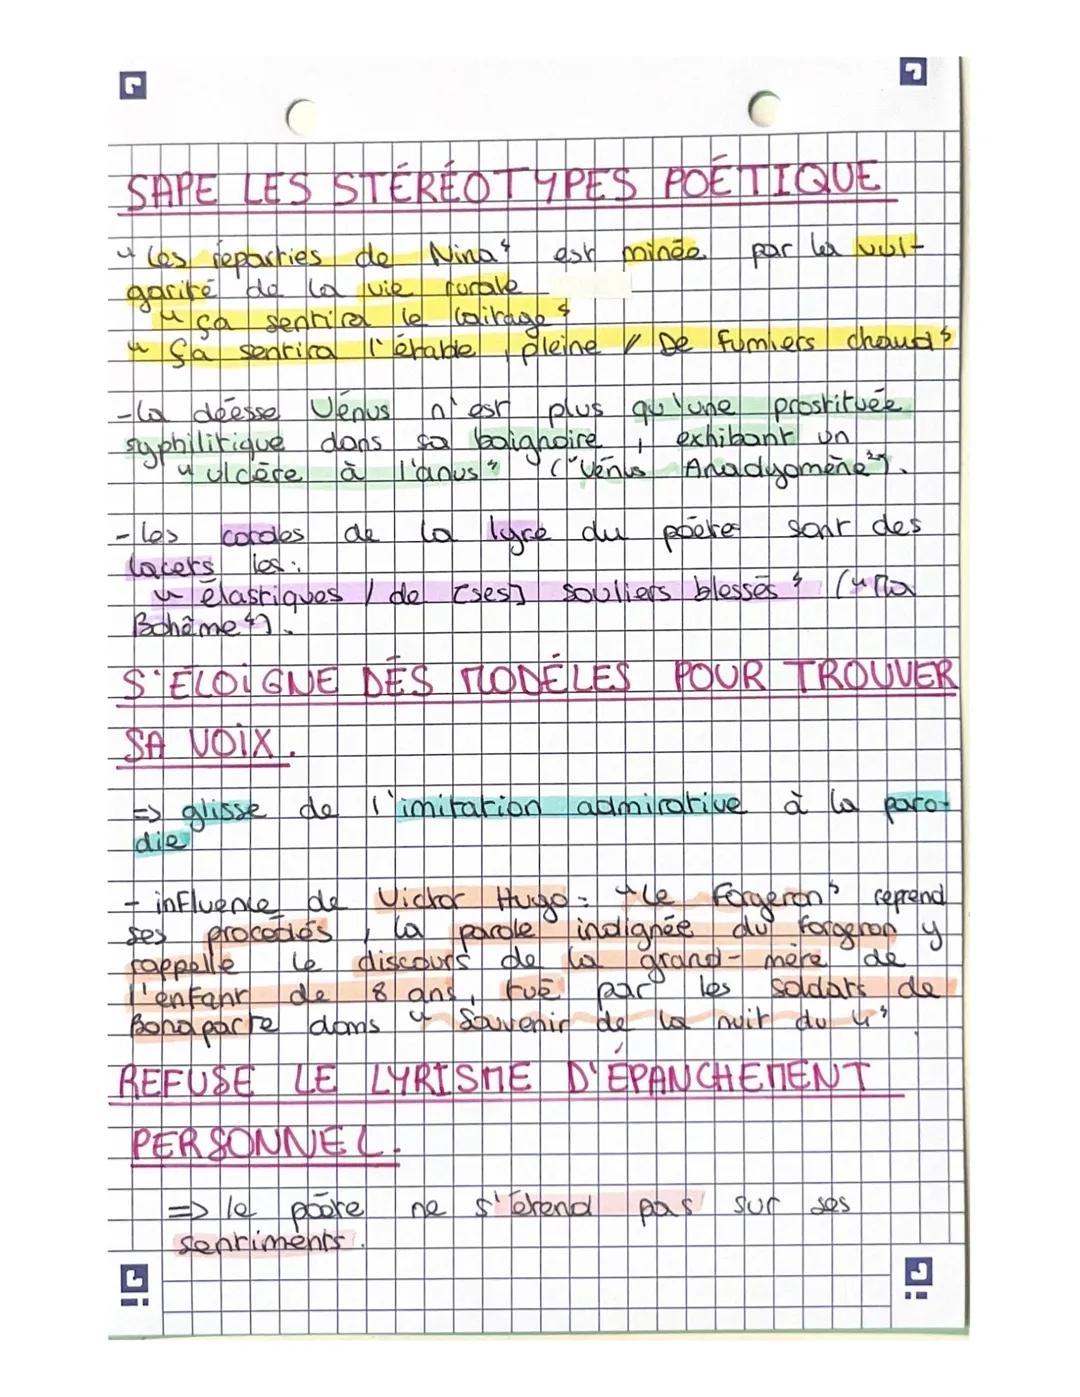 SAPE LES STÉRÉOTYPES POÉTIQUE
"Les reparties de Nina" est minée par la vul-
garité de la vie rurale
"ça sentira le laitage"
"Ça sentira l'étable, pleine // De fumiers chauds"
-la déesse Vénus n'est plus qu'une prostituée
syphilitique dans sa baignoire, exhibant un
"ulcère à l'anus" ("Vénus Anadyomène").
-les cordes de la lyre du poète sont des
lacets les:
"élastiques / de [ses] souliers blessés" ("Ma
Bohême").
S'ÉLOIGNE DÈS MODÈLES POUR TROUVER
SA VOIX.
=> glisse de l'imitation admirative à la paro-
die
- influence de Victor Hugo: "Le Forgeron" reprend
ses procédés, la parole indignée du forgeron y
rappelle le discours de la grand-mère de
l'enfant de 8 ans, tué par les soldats de
Bonaparte dans "Souvenir de la nuit du 4".
REFUSE LE LYRISME D'ÉPANCHEMENT
PERSONNEL.
=> le poète ne s'étend pas sur ses
sentiments.